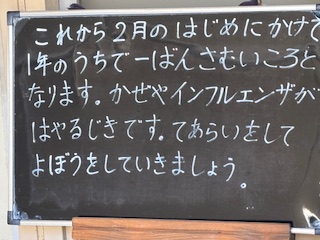 これから2月のはじめにかけて
1年のうちで一ばんさむいころと
なります。かぜやインフルエンザが
はやるじきです。てあらいをして
よぼうをしていきましょう。